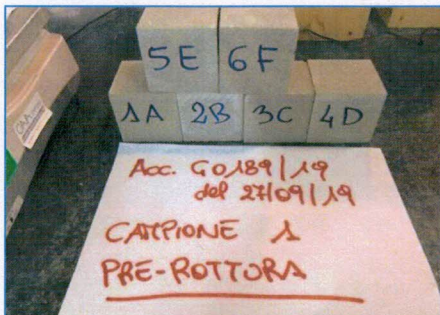 5E 6F
1A 2B 3C 4D
Acc. G0189/19
del 27/09/19
CAMPIONE 1
PRE-ROTTURA